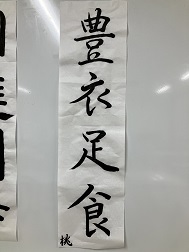 豊衣足食
桃